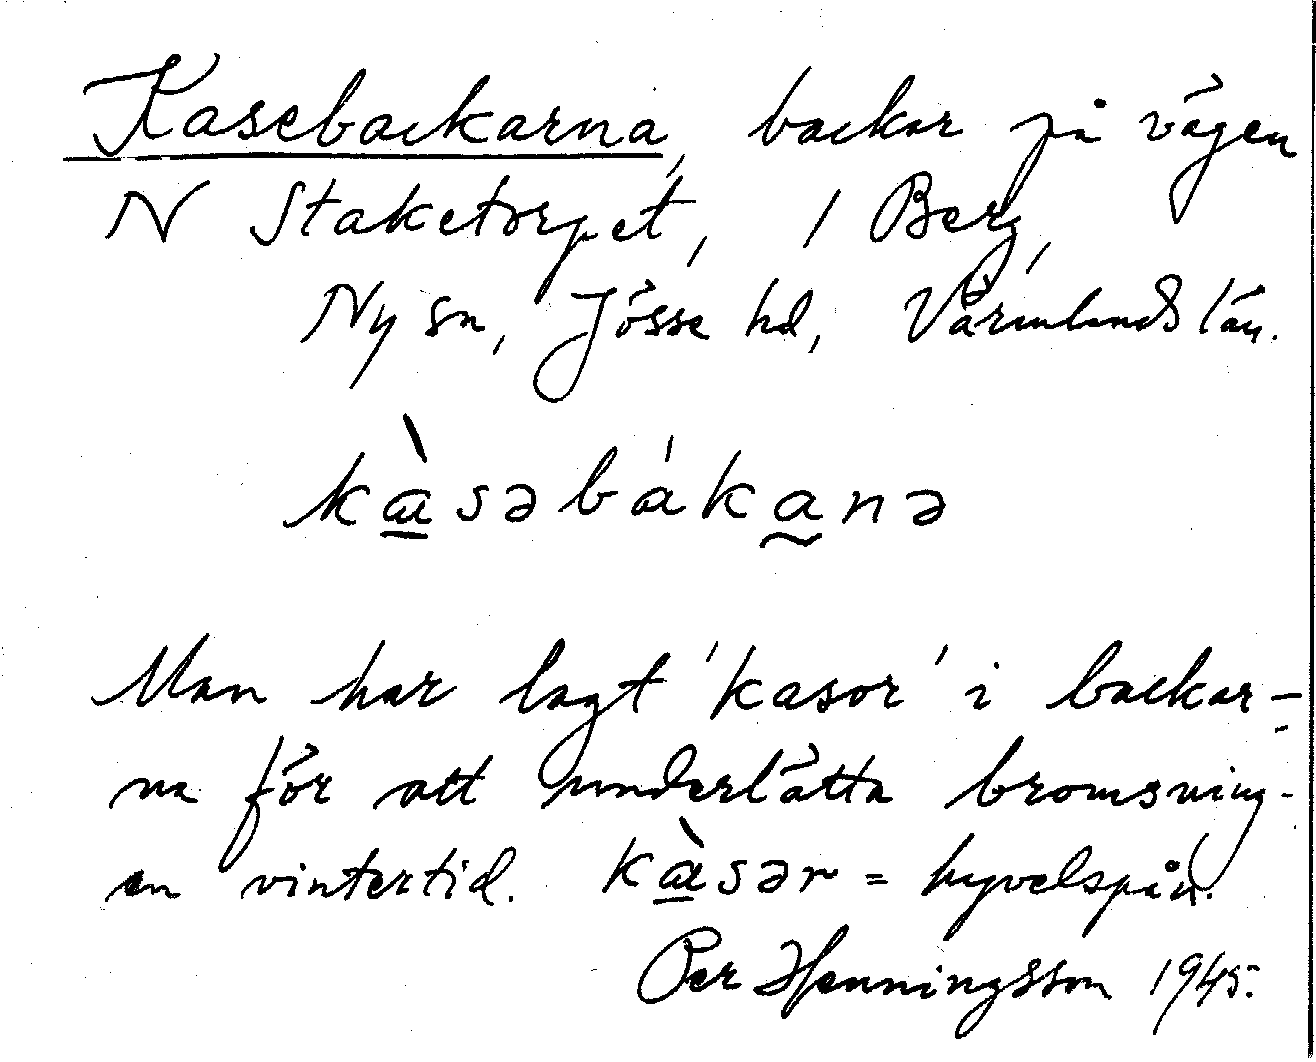 Kasebackarna, backar på vägen
N Staketorpet, 1 Berg,
Ny sn, Jösse hd, Värmlands län.
kàsəbákanə
Man har lagt 'kasor' i backar-
na för att underlätta bromsning-
en vintertid. kàsər = hyvelspån.
Per Henningsson 1945.